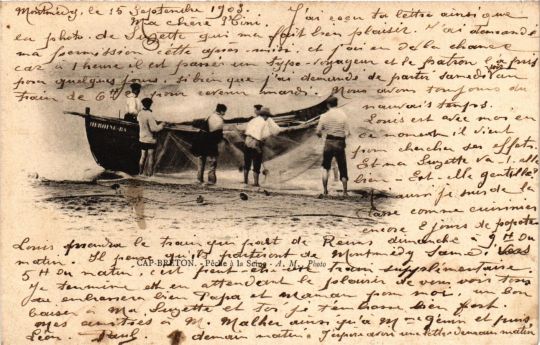 Montmédy, le 15 Septembre 1903.
Ma chère Titini, J'ai reçu ta lettre ainsi que
la photo de Suzette qui m'a fait bien plaisir. J'ai demandé
ma permission cette après-midi et j'ai eu de la chance
car à 1 heure il est passé un typo-voyageur et le patron l'a pris
pour quelques jours, si bien que j'ai demandé de partir samedi au
train de 6 h pour revenir mardi. Nous avons toujours du
mauvais temps.
Louis est avec moi en
ce moment il vient
pour chercher ses effets.
Et ma Suzette va-t-elle
bien - Est-elle gentille?
aussi je suis de la
classe comme cuisinier
encore 2 jours de popote
Louis prendra le train qui part de Reims dimanche à 9 H du
matin. Il pense qu'ils partiront de Montmédy Samedi vers
5 H du matin, c'est peut-être train supplémentaire.
Je termine en attendant le plaisir de vous voir tous
tu embrasseras bien Papa et Maman pour moi, un bon
baiser à Ma Suzette et toi je t'embrasse bien fort
Mes amitiés à M. Malher ainsi qu'à Mme Génin et puis
Léon. Paul. à demain matin. J'espère avoir une lettre demain matin
CAP-BRETON. - Pêche à la Seine - A. M., Photo